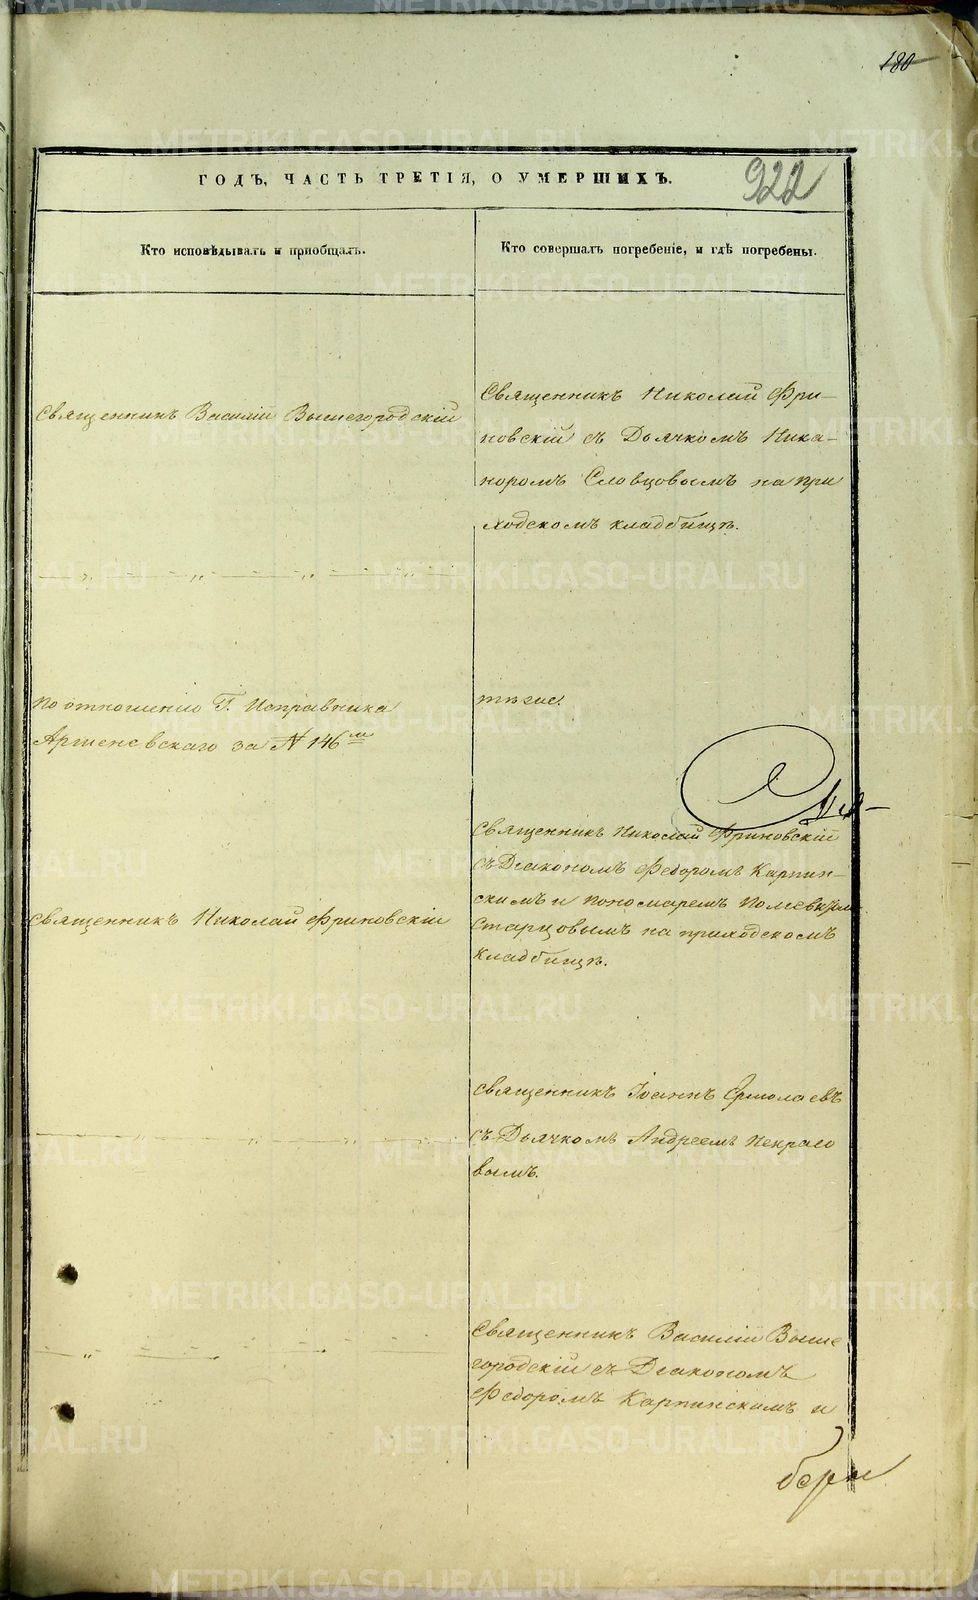 180
922
ГОДЪ, ЧАСТЬ ТРЕТІЯ, О УМЕРШИХЪ.
Кто исповѣдывалъ и приобщалъ.
Кто совершалъ погребеніе, и гдѣ погребены.
Священникъ Василій Вышегородскій
Священникъ Николай Фри-
новскій съ Дьячкомъ Ника-
норомъ Словцовымъ на при
ходскомъ кладбищѣ.
По отношенію Г. Исправника
Арженевскаго за № 146м
тѣже.
Священникъ Николай Фриновскій
съ Діакономъ Федоромъ Карпин-
скимъ и Пономаремъ
Старцовымъ на приходскомъ
кладбищѣ.
Священникъ Николай Фриновскій
Священникъ Іоаннъ Ермолаевъ
съ Дьячкомъ Андреемъ Некрасо
вымъ.
Священникъ Василій Выше
городскій съ Діакономъ
Федоромъ Карпинскимъ и
METRIKI.GASO-URAL.RU